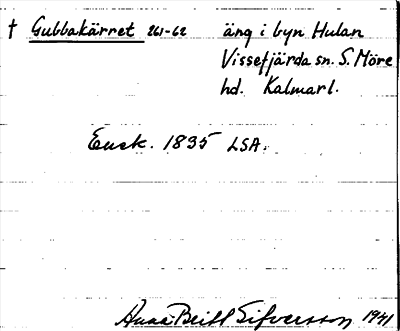 † Gubbakärret 261-62 äng i byn Hulan
Vissefjärda sn. S. Möre
hd. Kalmarl.
Ensk. 1835 LSA.
Anna Britt Sifversson 1941